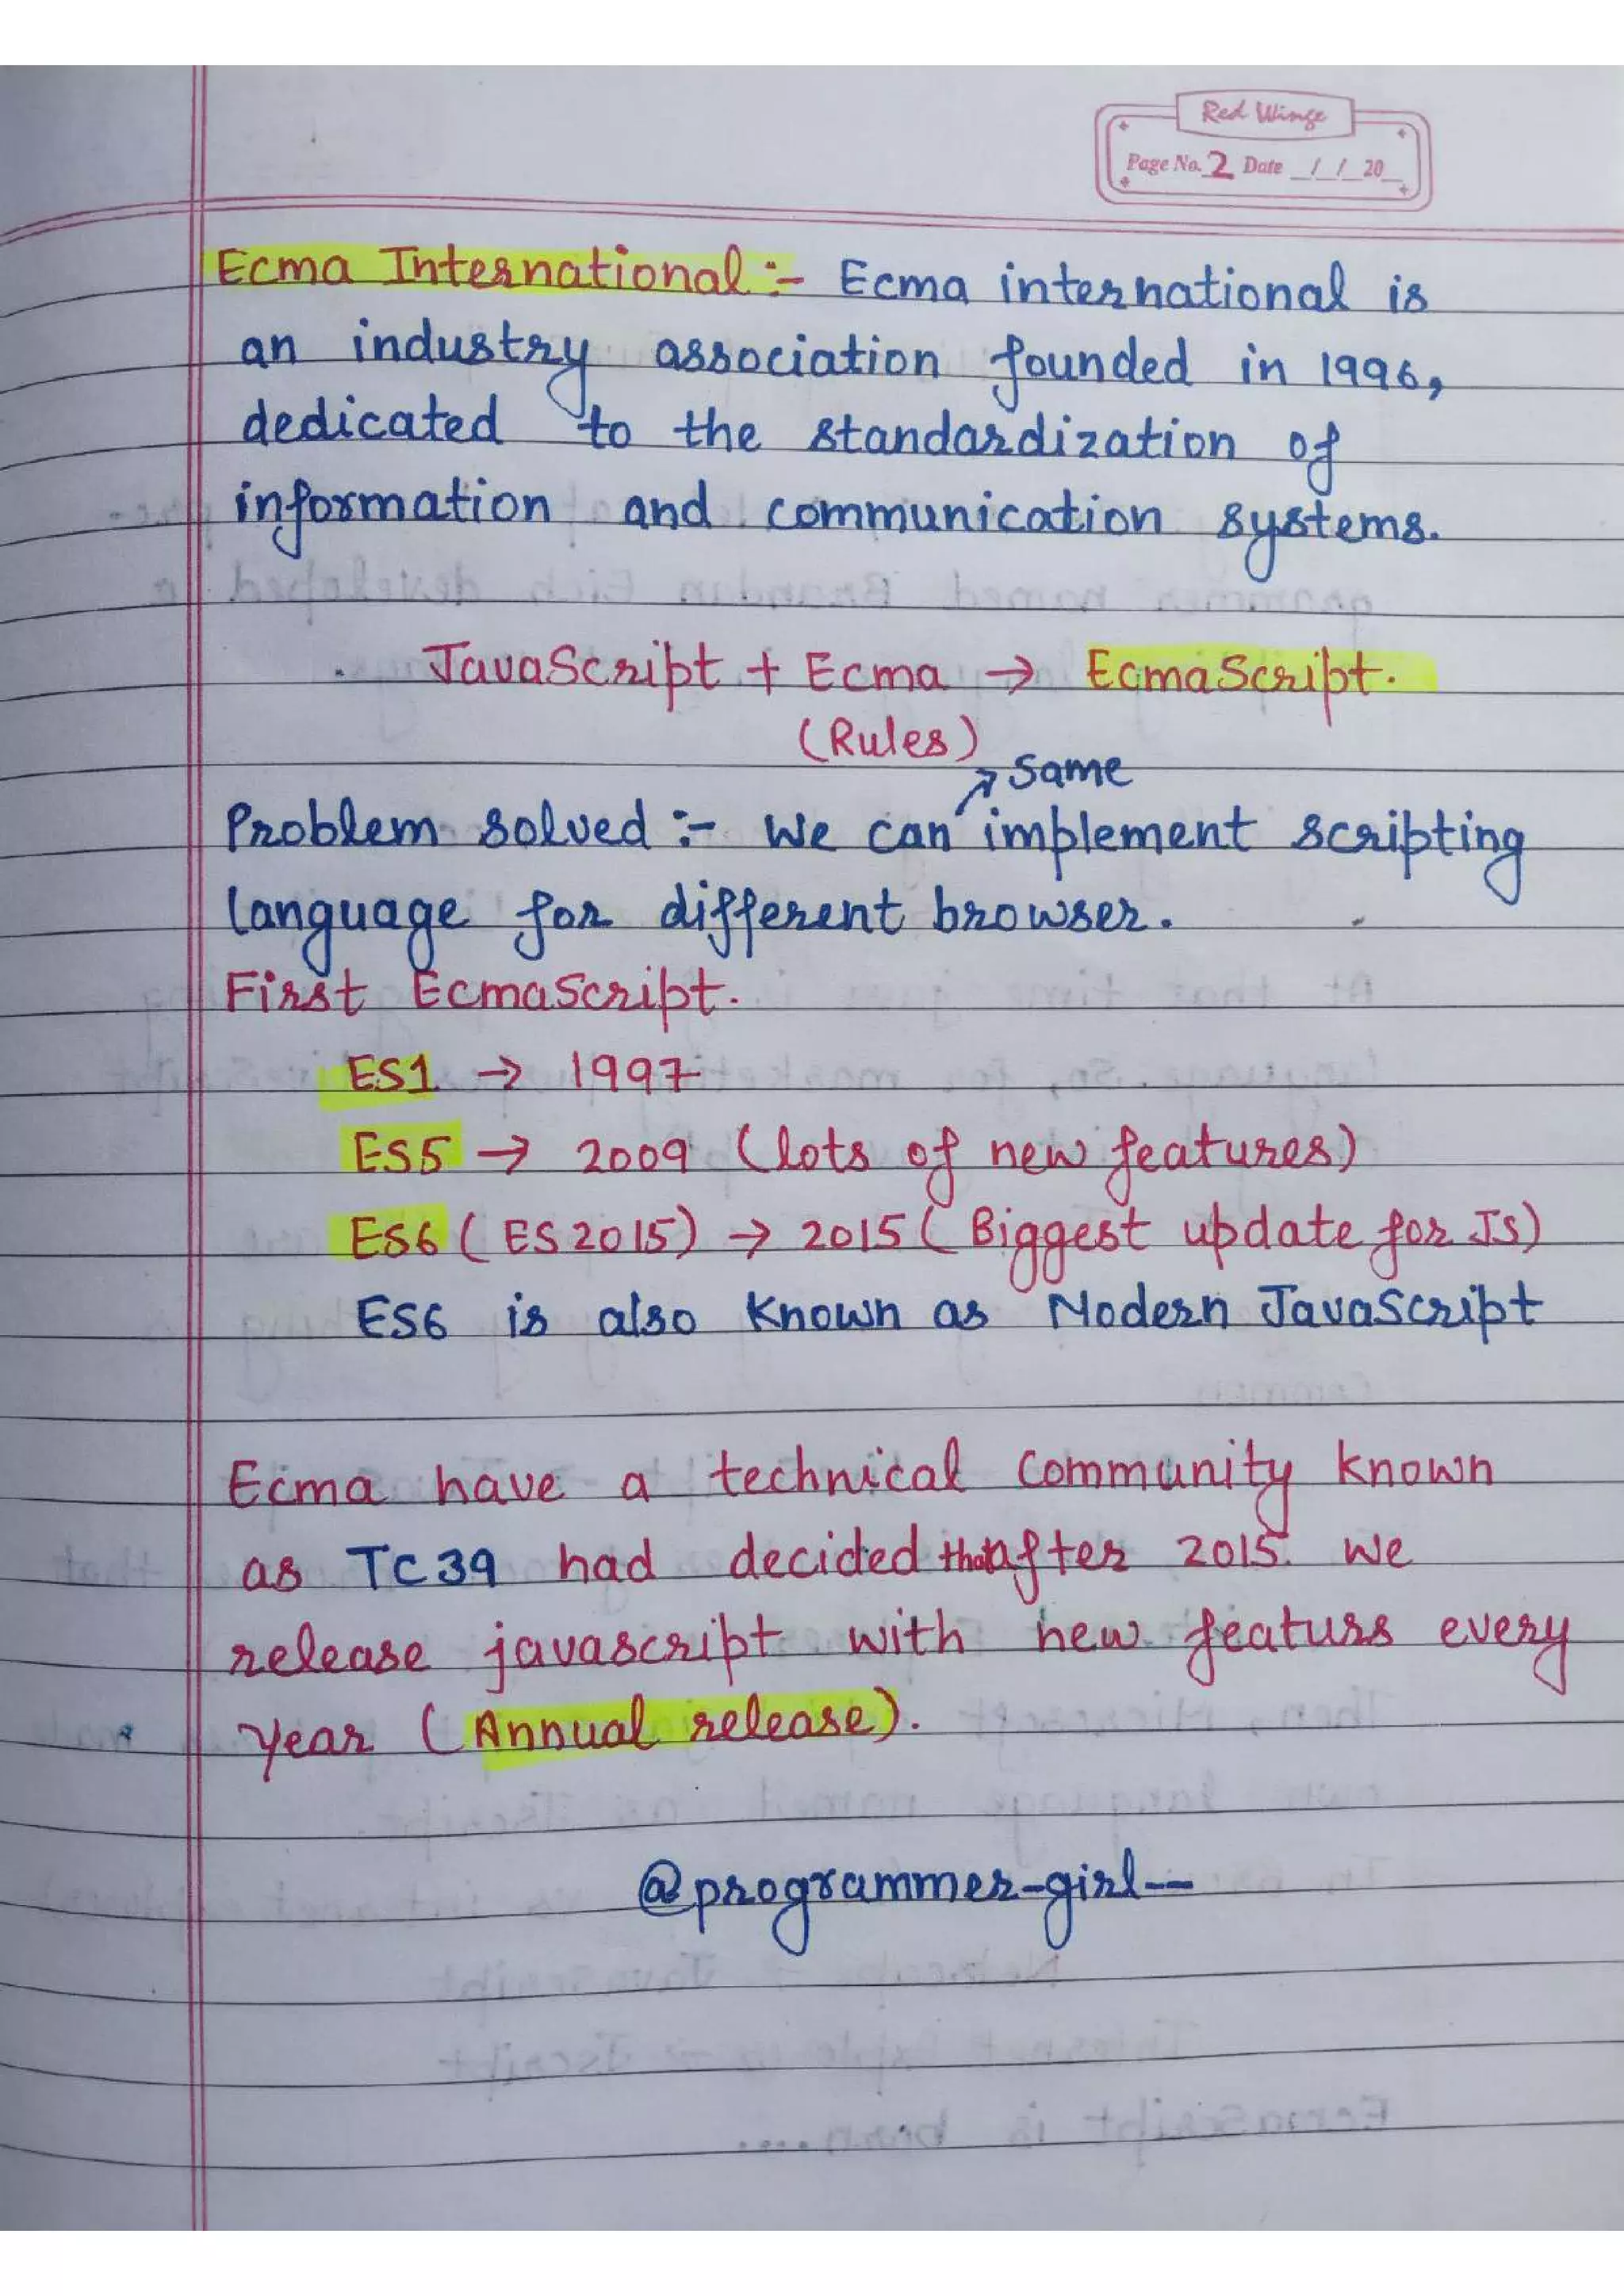 Red Wings
Page No. 2 Date _/_/_20_
Ecma International :- Ecma international is
an industry association founded in 1996,
dedicated to the standardization of
information and communication systems.
JavaScript + Ecma → EcmaScript.
(Rules)
↗ same
Problem solved :- We can implement scripting
language for different browser.
First EcmaScript.
ES1 → 1997
ES5 → 2009 (lots of new features)
ES6 (ES2015) → 2015 (Biggest update for JS)
ES6 is also known as Modern JavaScript
Ecma have a technical community known
as TC39 had decided that after 2015. We
release javascript with new featurs every
year (Annual release).
@programmer-girl--